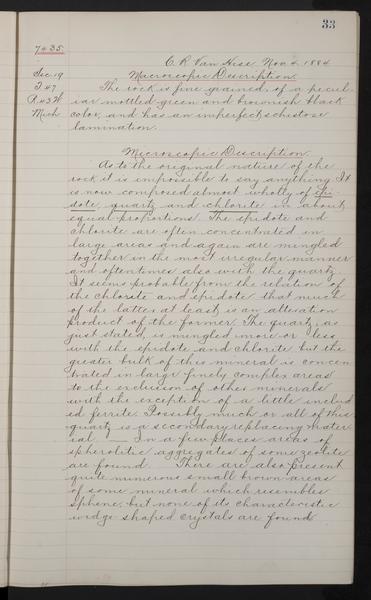 33
7435
C. R. Van Hise. Nov. 2, 1884
Sec. 19
Macroscopic Description.
T. 47
The rock is fine grained, of a pecul-
R. 43 W
iar mottled green and brownish black
Mich
color, and has an imperfect schistose
lamination.
Microscopic Description.
As to the original nature of the
rock it is impossible to say anything. It
is now composed almost wholly of epi-
dote, quartz and chlorite in about
equal proportions. The epidote and
chlorite are often concentrated in
large areas and again are mingled
together in the most irregular manner
and oftentimes also with the quartz.
It seems probable from the relation of
the chlorite and epidote that much
of the latter at least is an alteration
product of the former. The quartz, as
just stated, is mingled more or less
with the epidote and chlorite but the
greater bulk of this mineral is concen-
trated in large finely complex areas
to the exclusion of other minerals
with the exception of a little includ-
ed ferrite. Possibly much or all of this
quartz is a secondary replacing mater-
ial — In a few places areas of
spherolitic aggregates of some zeolite
are found. There are also present
quite numerous small brown areas
of some mineral which resembles
sphene, but none of its characteristic
wedge shaped crystals are found